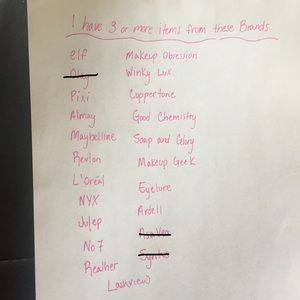 I have 3 or more items from these Brands
elf
Pixi
Almay
Maybelline
Revlon
L'Oréal
NYX
Julep
No 7
Realher
Lashview
Makeup Obsession
Winky Lux
Coppertone
Good Chemistry
Soap and Glory
Makeup Geek
Eyelure
Ardell